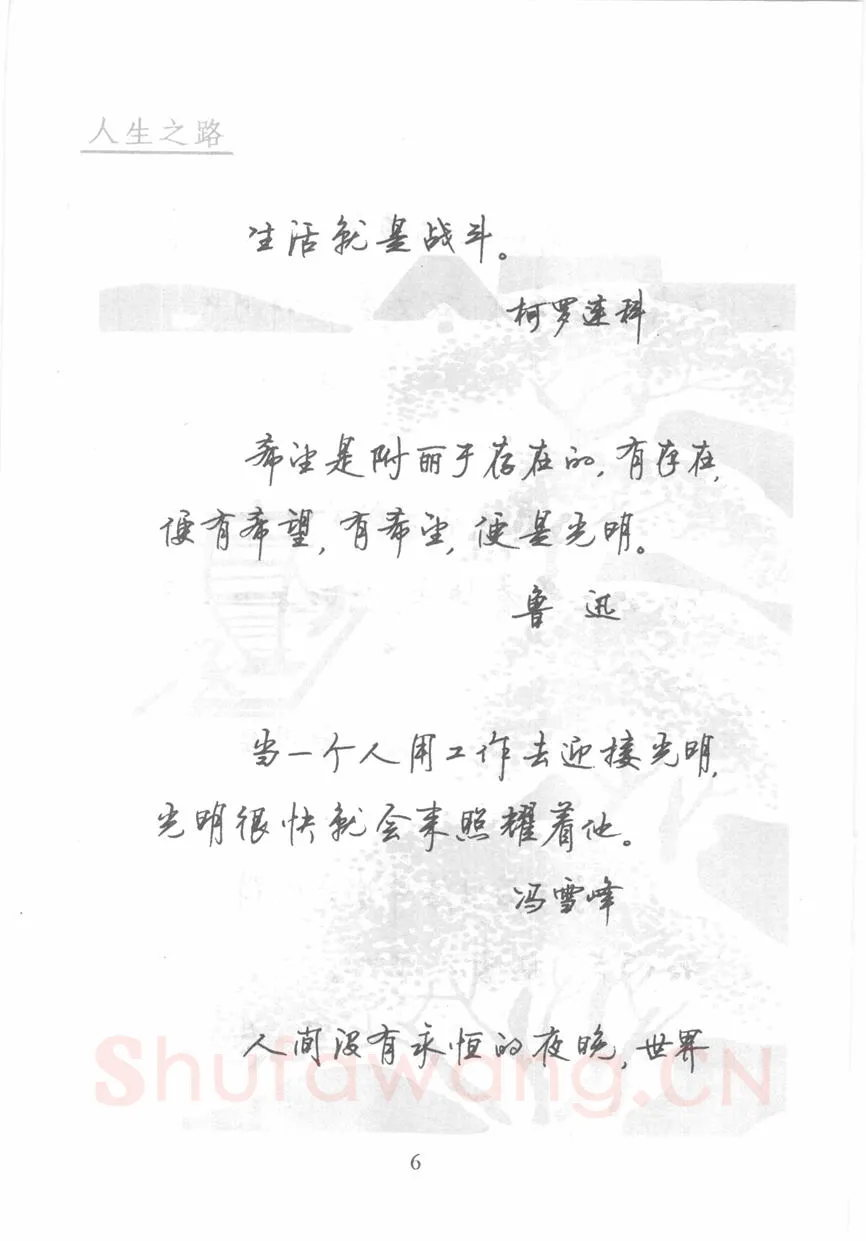 人生之路
生活就是战斗。
柯罗连科
希望是附丽于存在的,有存在,
便有希望,有希望,便是光明。
鲁 迅
当一个人用工作去迎接光明,
光明很快就会来照耀着他。
冯雪峰
人间没有永恒的夜晚,世界
Shufawang.CN
6